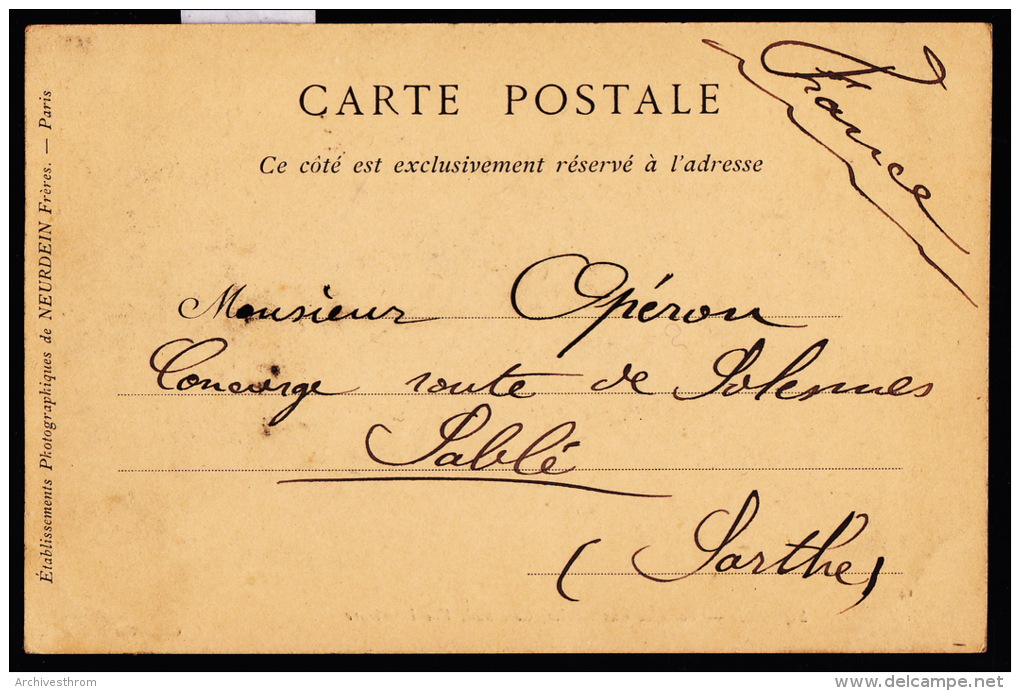 CARTE POSTALE
Ce côté est exclusivement réservé à l'adresse
France
Monsieur Opéron
Concierge route de Solesmes
Sablé
(Sarthe)
Établissements Photographiques de NEURDEIN Frères. — Paris
Archivesthrom
delcampe.net